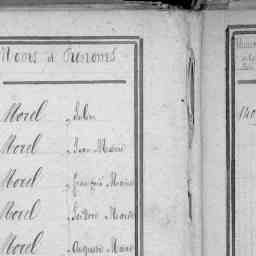 Noms et Prénoms
Morel, Jules
Morel, Jean Marie
Morel, François Marie
Morel, Isidore Marie
Morel, Auguste Marie
140